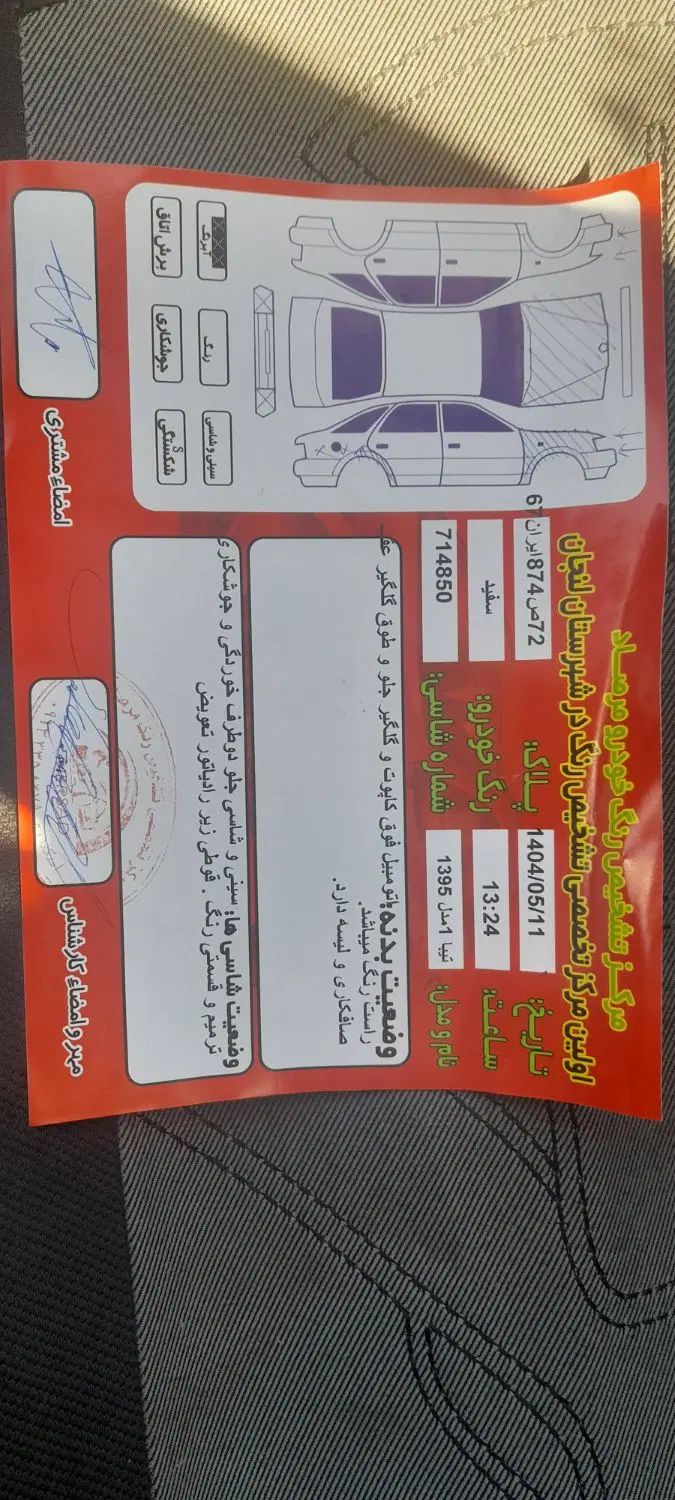 مرکـز تشخیص رنگ خودرو مرصـاد
اولین مرکز تخصصی تشخیص رنگ در شهرستان لنجان
تاریخ: 1404/05/11
پلاک: 72ص874ایران67
ساعت: 13:24
رنگ خودرو: سفید
نام و مدل: تیبا 1مدل 1395
شماره شاسی: 714850
وضعیت بدنه: اتومبیل فوق کاپوت و گلگیر جلو و طوق گلگیر عقـ
راست رنگ میباشد.
صافکاری و لیسه دارد.
وضعیت شاسی ها: سینی و شاسی جلو دوطرف خوردگی و جوشکاری
ترمیم و قسمتی رنگ . قوطی زیر رادیاتور تعویض
آبرنگ
رنگ
سینی و شاسی
برش اتاق
جوشکاری
شکستگی
امضاء مشتری
مهر و امضاء کارشناس